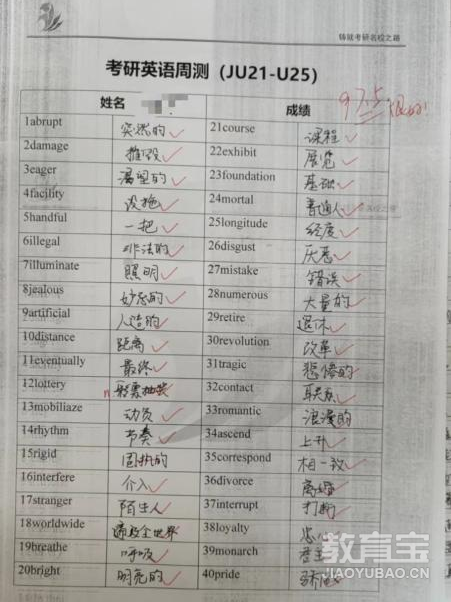 铸就考研名校之路
考研英语周测（JU21-U25）
姓名 成绩 97.5
1abrupt 突然的 21course 课程
2damage 摧毁 22exhibit 展览
3eager 渴望的 23foundation 基础
4facility 设施 24mortal 普通人
5handful 一把 25longitude 经度
6illegal 非法的 26disgust 厌恶
7illuminate 照明 27mistake 错误
8jealous 妒忌的 28numerous 大量的
9artificial 人造的 29retire 退休
10distance 距离 30revolution 改革
11eventually 最终 31tragic 悲惨的
12lottery 彩票抽奖 32contact 联系
13mobiliaze 动员 33romantic 浪漫的
14rhythm 节奏 34ascend 上升
15rigid 固执的 35correspond 相一致
16interfere 介入 36divorce 离婚
17stranger 陌生人 37interrupt 打断
18worldwide 遍及全世界 38loyalty 忠心
19breathe 呼吸 39monarch 君主
20bright 明亮的 40pride
教育宝
JIAOYUBAO.CN